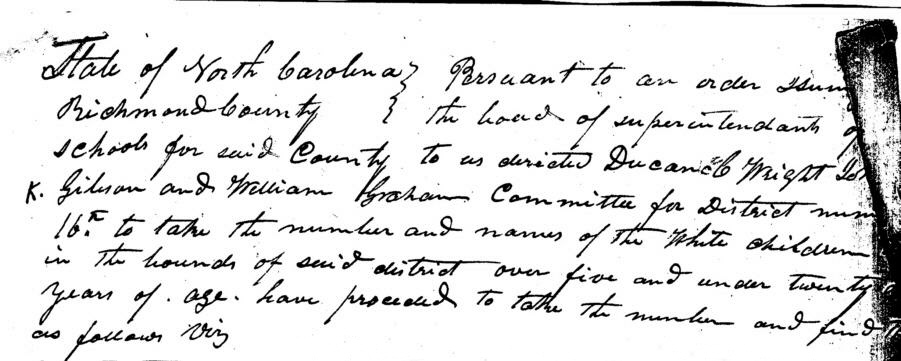 State of North Carolina } Persuant to an order issu
Richmond County } the boad of superintendants of
schools for said County to us dericted Ducan McC Wright
K. Gibson and William Graham Committee for District num
16th to take the number and names of the White children
in the bounds of said district over five and under twenty
years of age. have proceded to take the number and find
as follows Viz